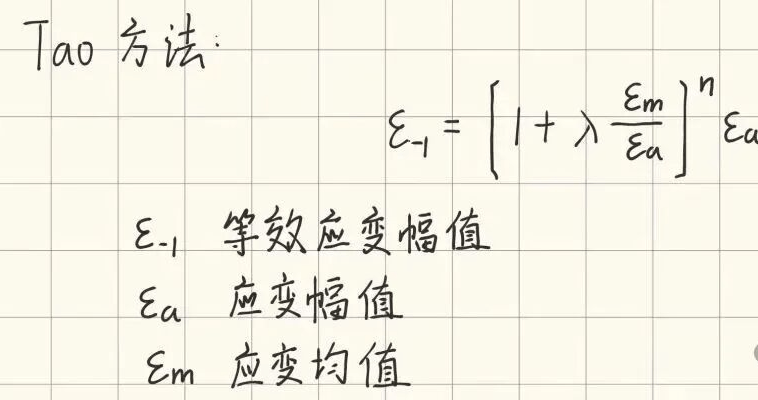 Tao 方法:
ε₋₁ = [1 + λ εm/εa]ⁿ εa
ε₋₁ 等效应变幅值
εa 应变幅值
εm 应变均值